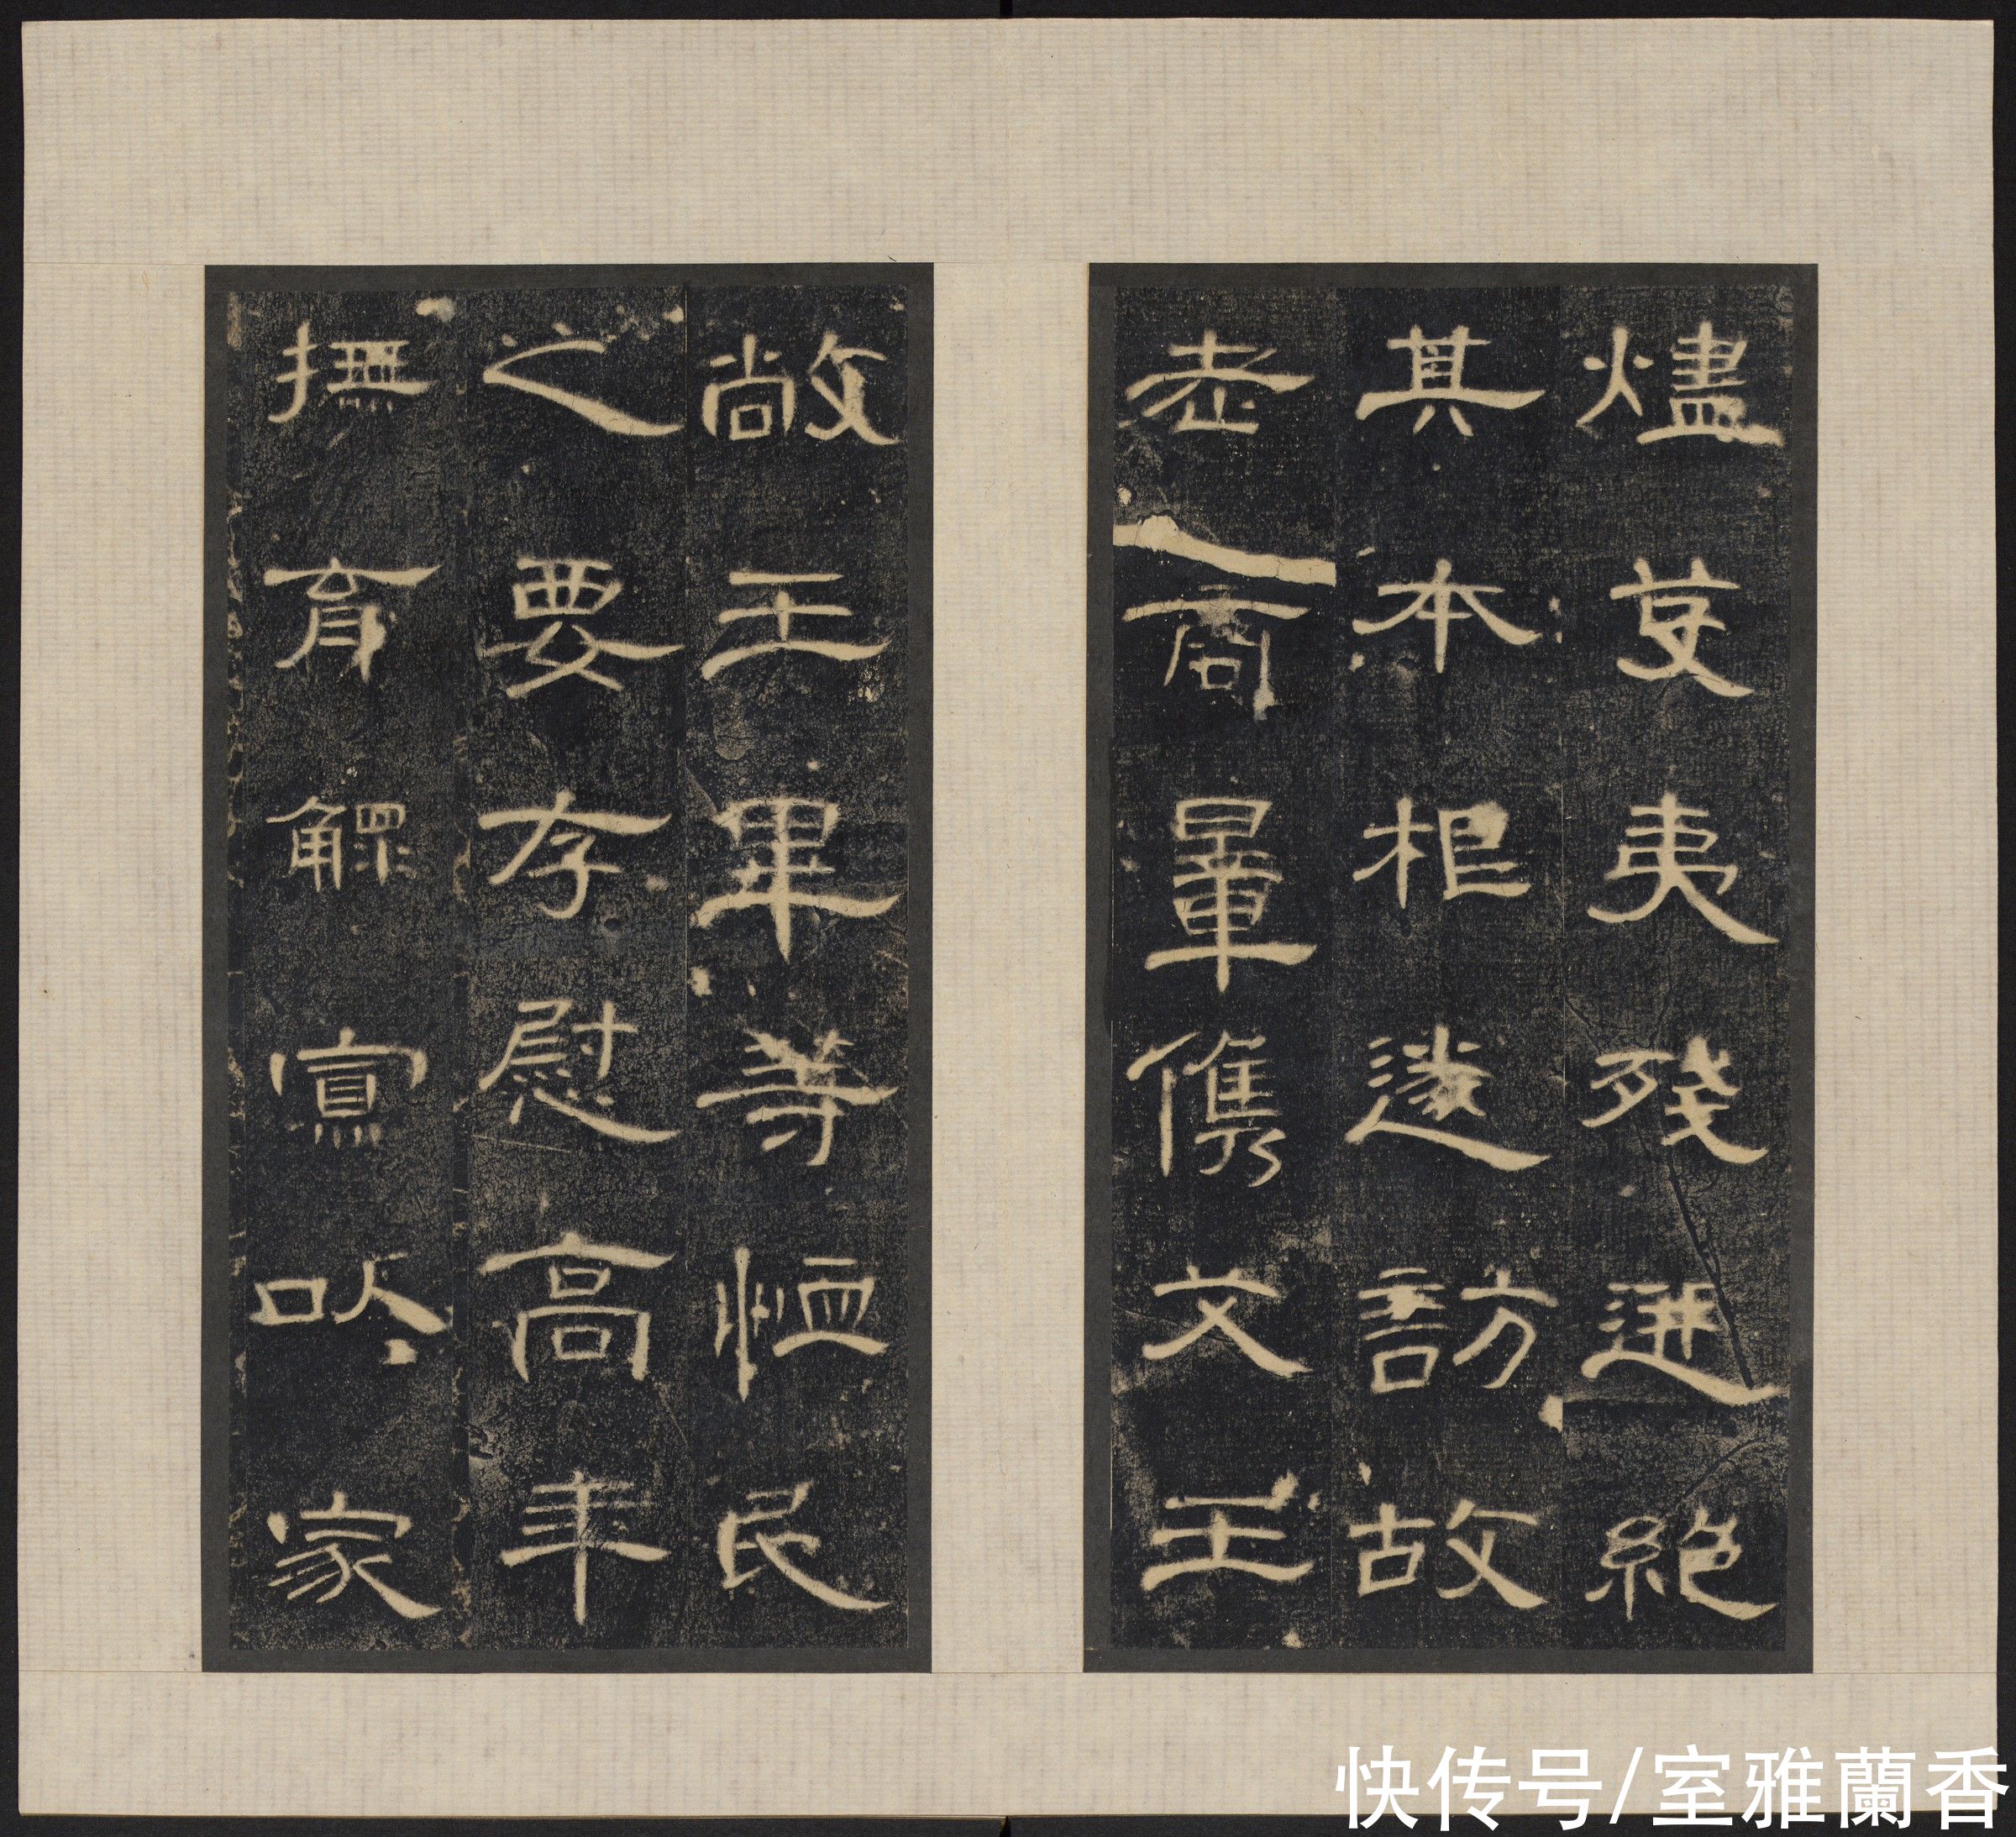 燼芟夷殘迸絕
其本根遂訪故
老商量儁艾王
敞王畢等恤民
之要存慰高年
撫育鰥寡以家
快传号/室雅蘭香